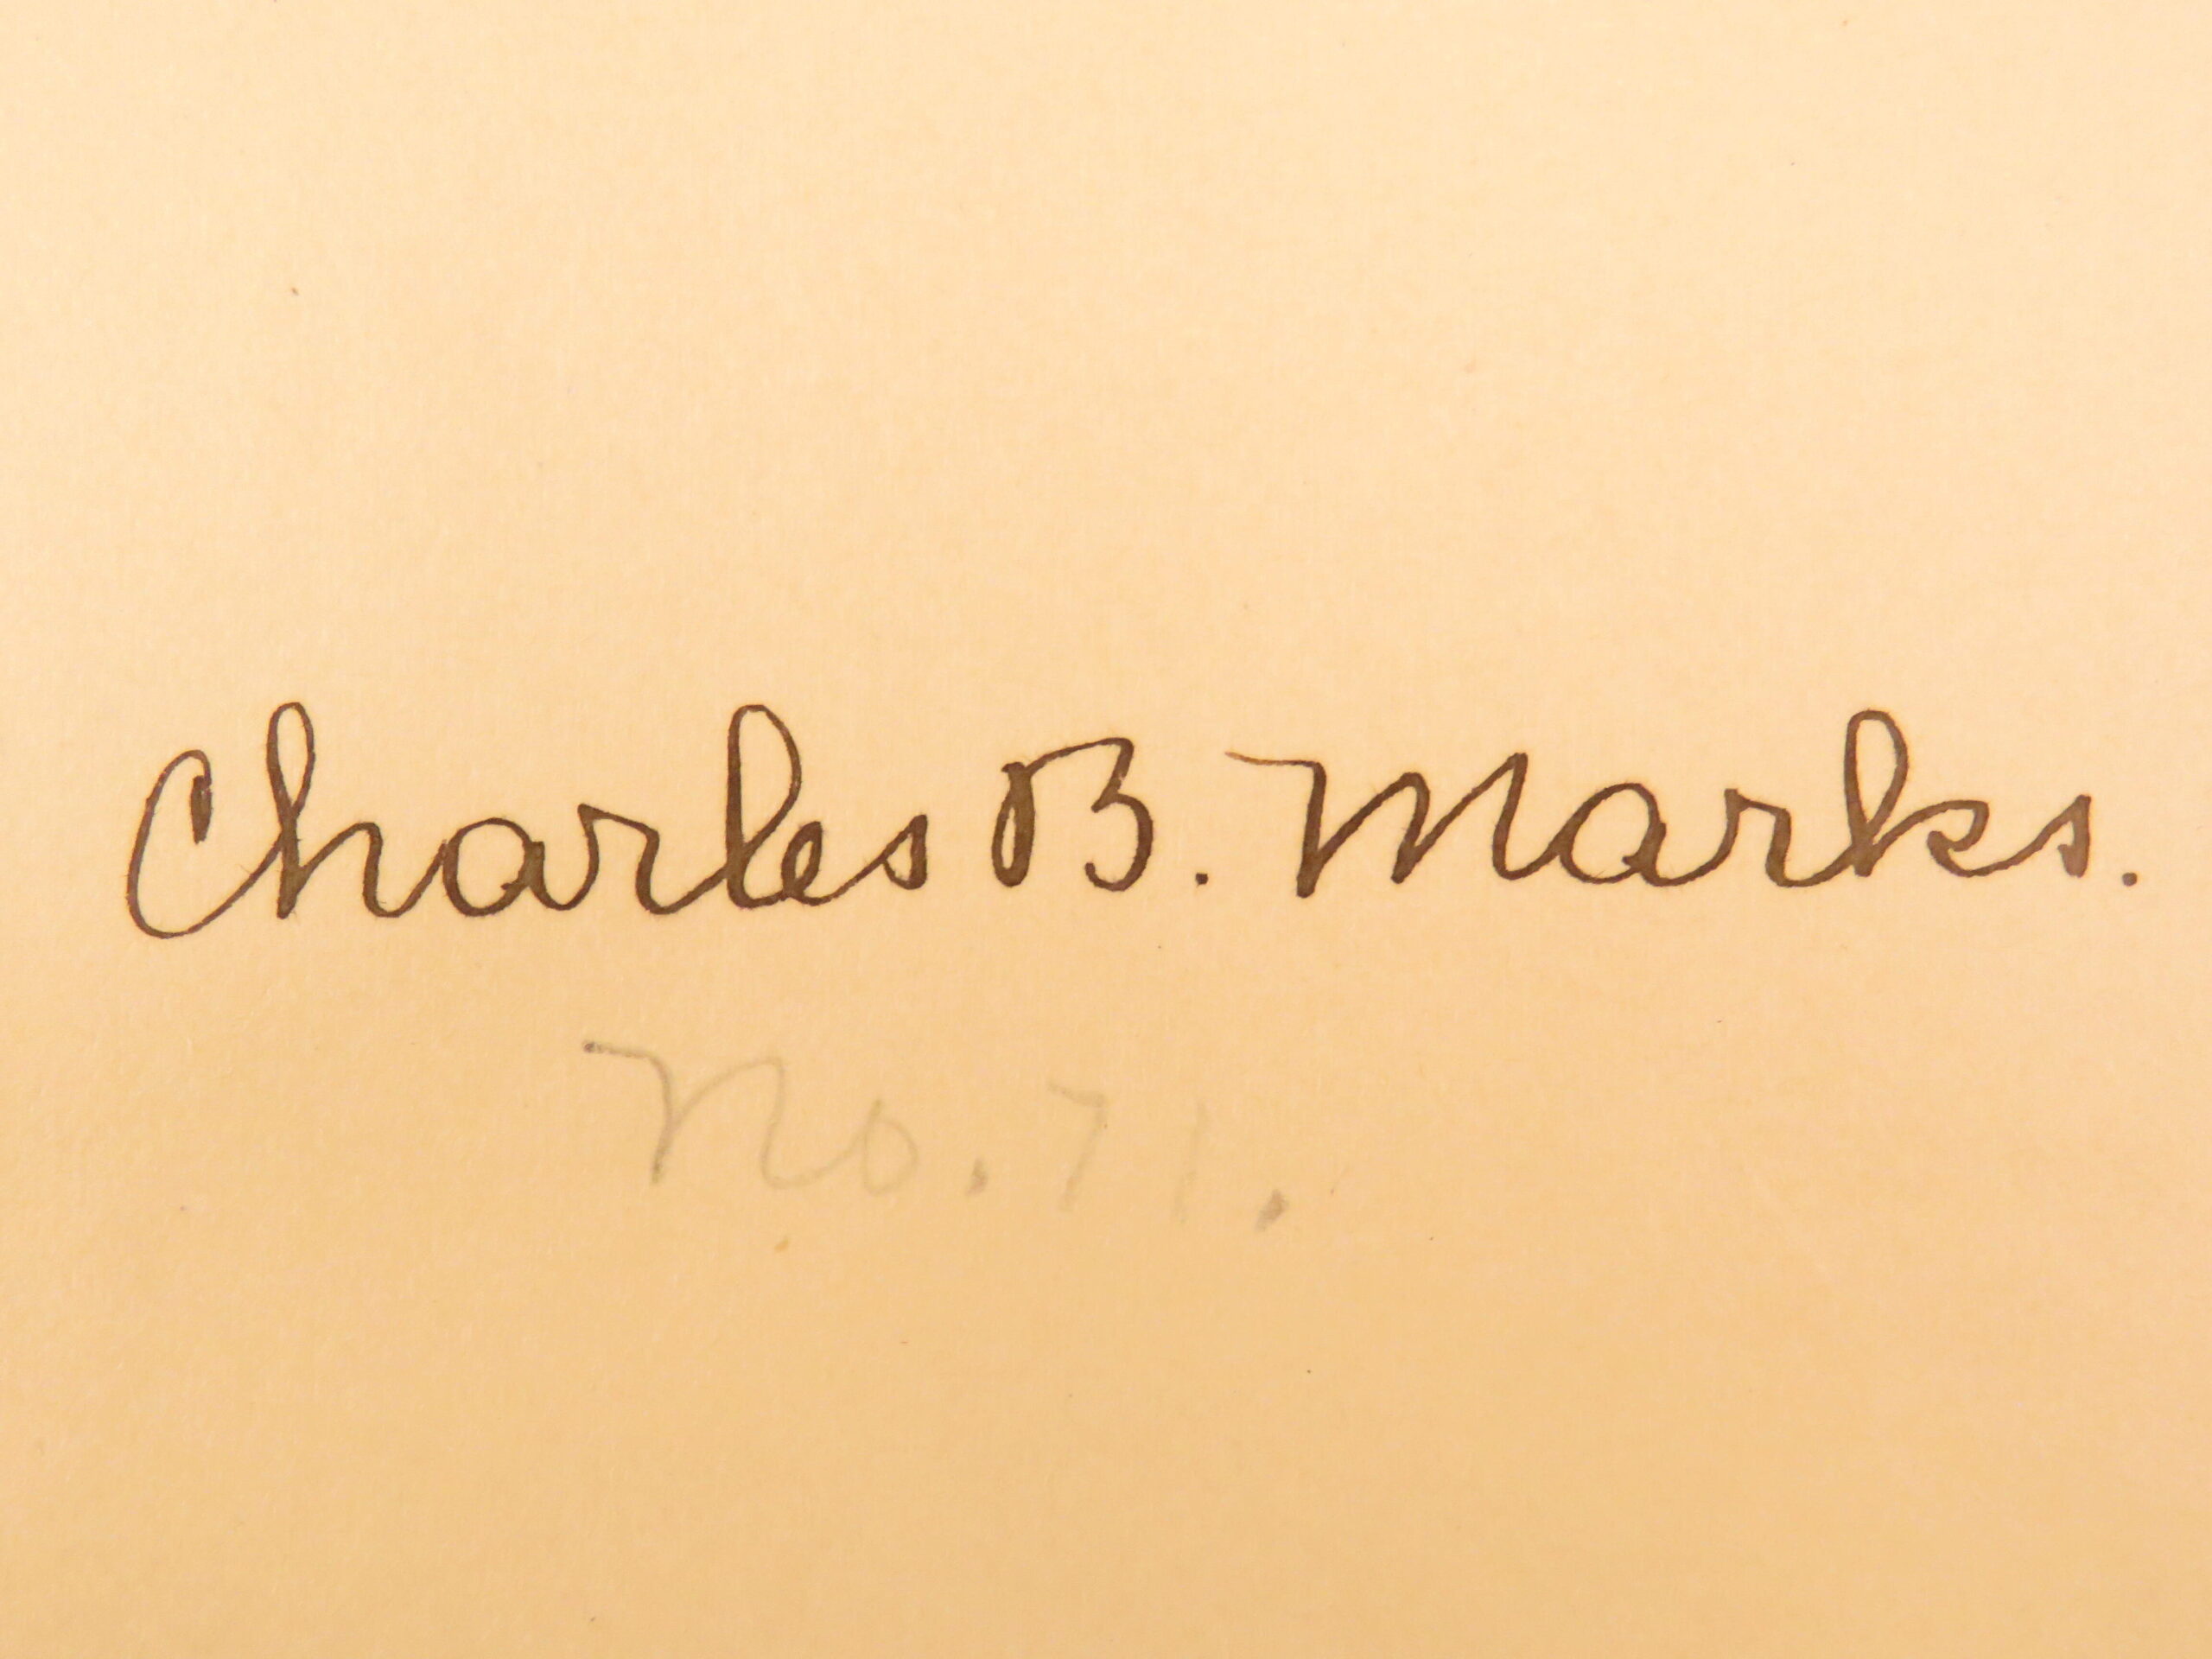 Charles B. Marks.
No. 71.